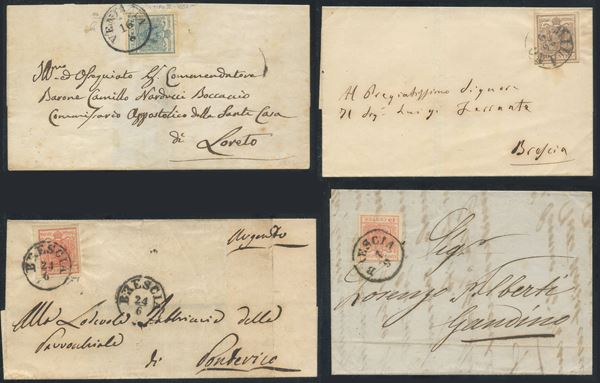 VENEZIA
Ill.mo ed Ossequiato Sig. Commendatore
Barone Camillo Narducci Boccaccio
Commissario Appostolico della Santa Casa
di Loreto
Al Pregiatissimo Signore
Il Sig.r Luigi
Brescia
BRESCIA
24
6
BRESCIA
24
6
Alla Lodevole Fabbriceria della
Parrocchiale
di Pontevico
BRESCIA
Sig.r
Lorenzo Alberti
Gandino